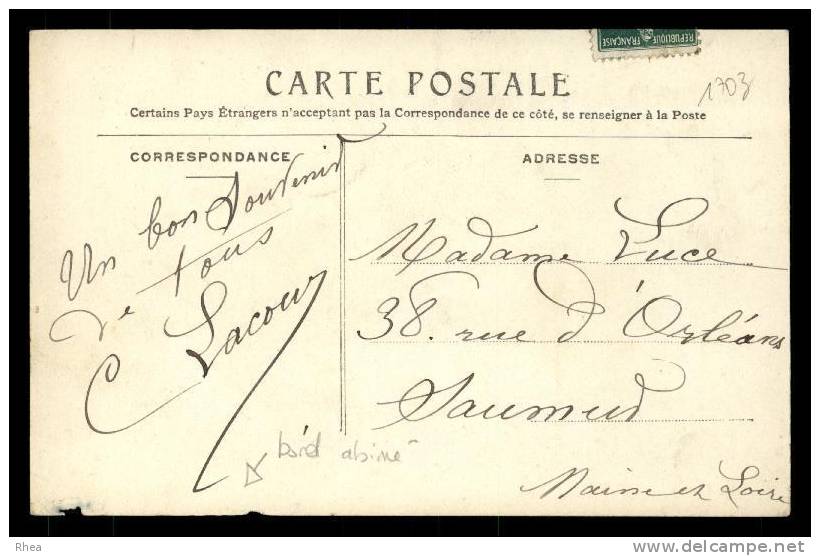 RÉPUBLIQUE FRANÇAISE
CARTE POSTALE
1703
Certains Pays Étrangers n'acceptant pas la Correspondance de ce côté, se renseigner à la Poste
CORRESPONDANCE
Un bon Souvenir
de tous
C Lacour
bord abimé
ADRESSE
Madame Luce
38. rue d'Orléans
Saumur
Maine et Loire
Rhea
www.delcampe.net